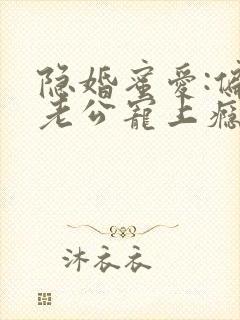 隐婚蜜爱:偏
老公宠上瘾
沐衣衣